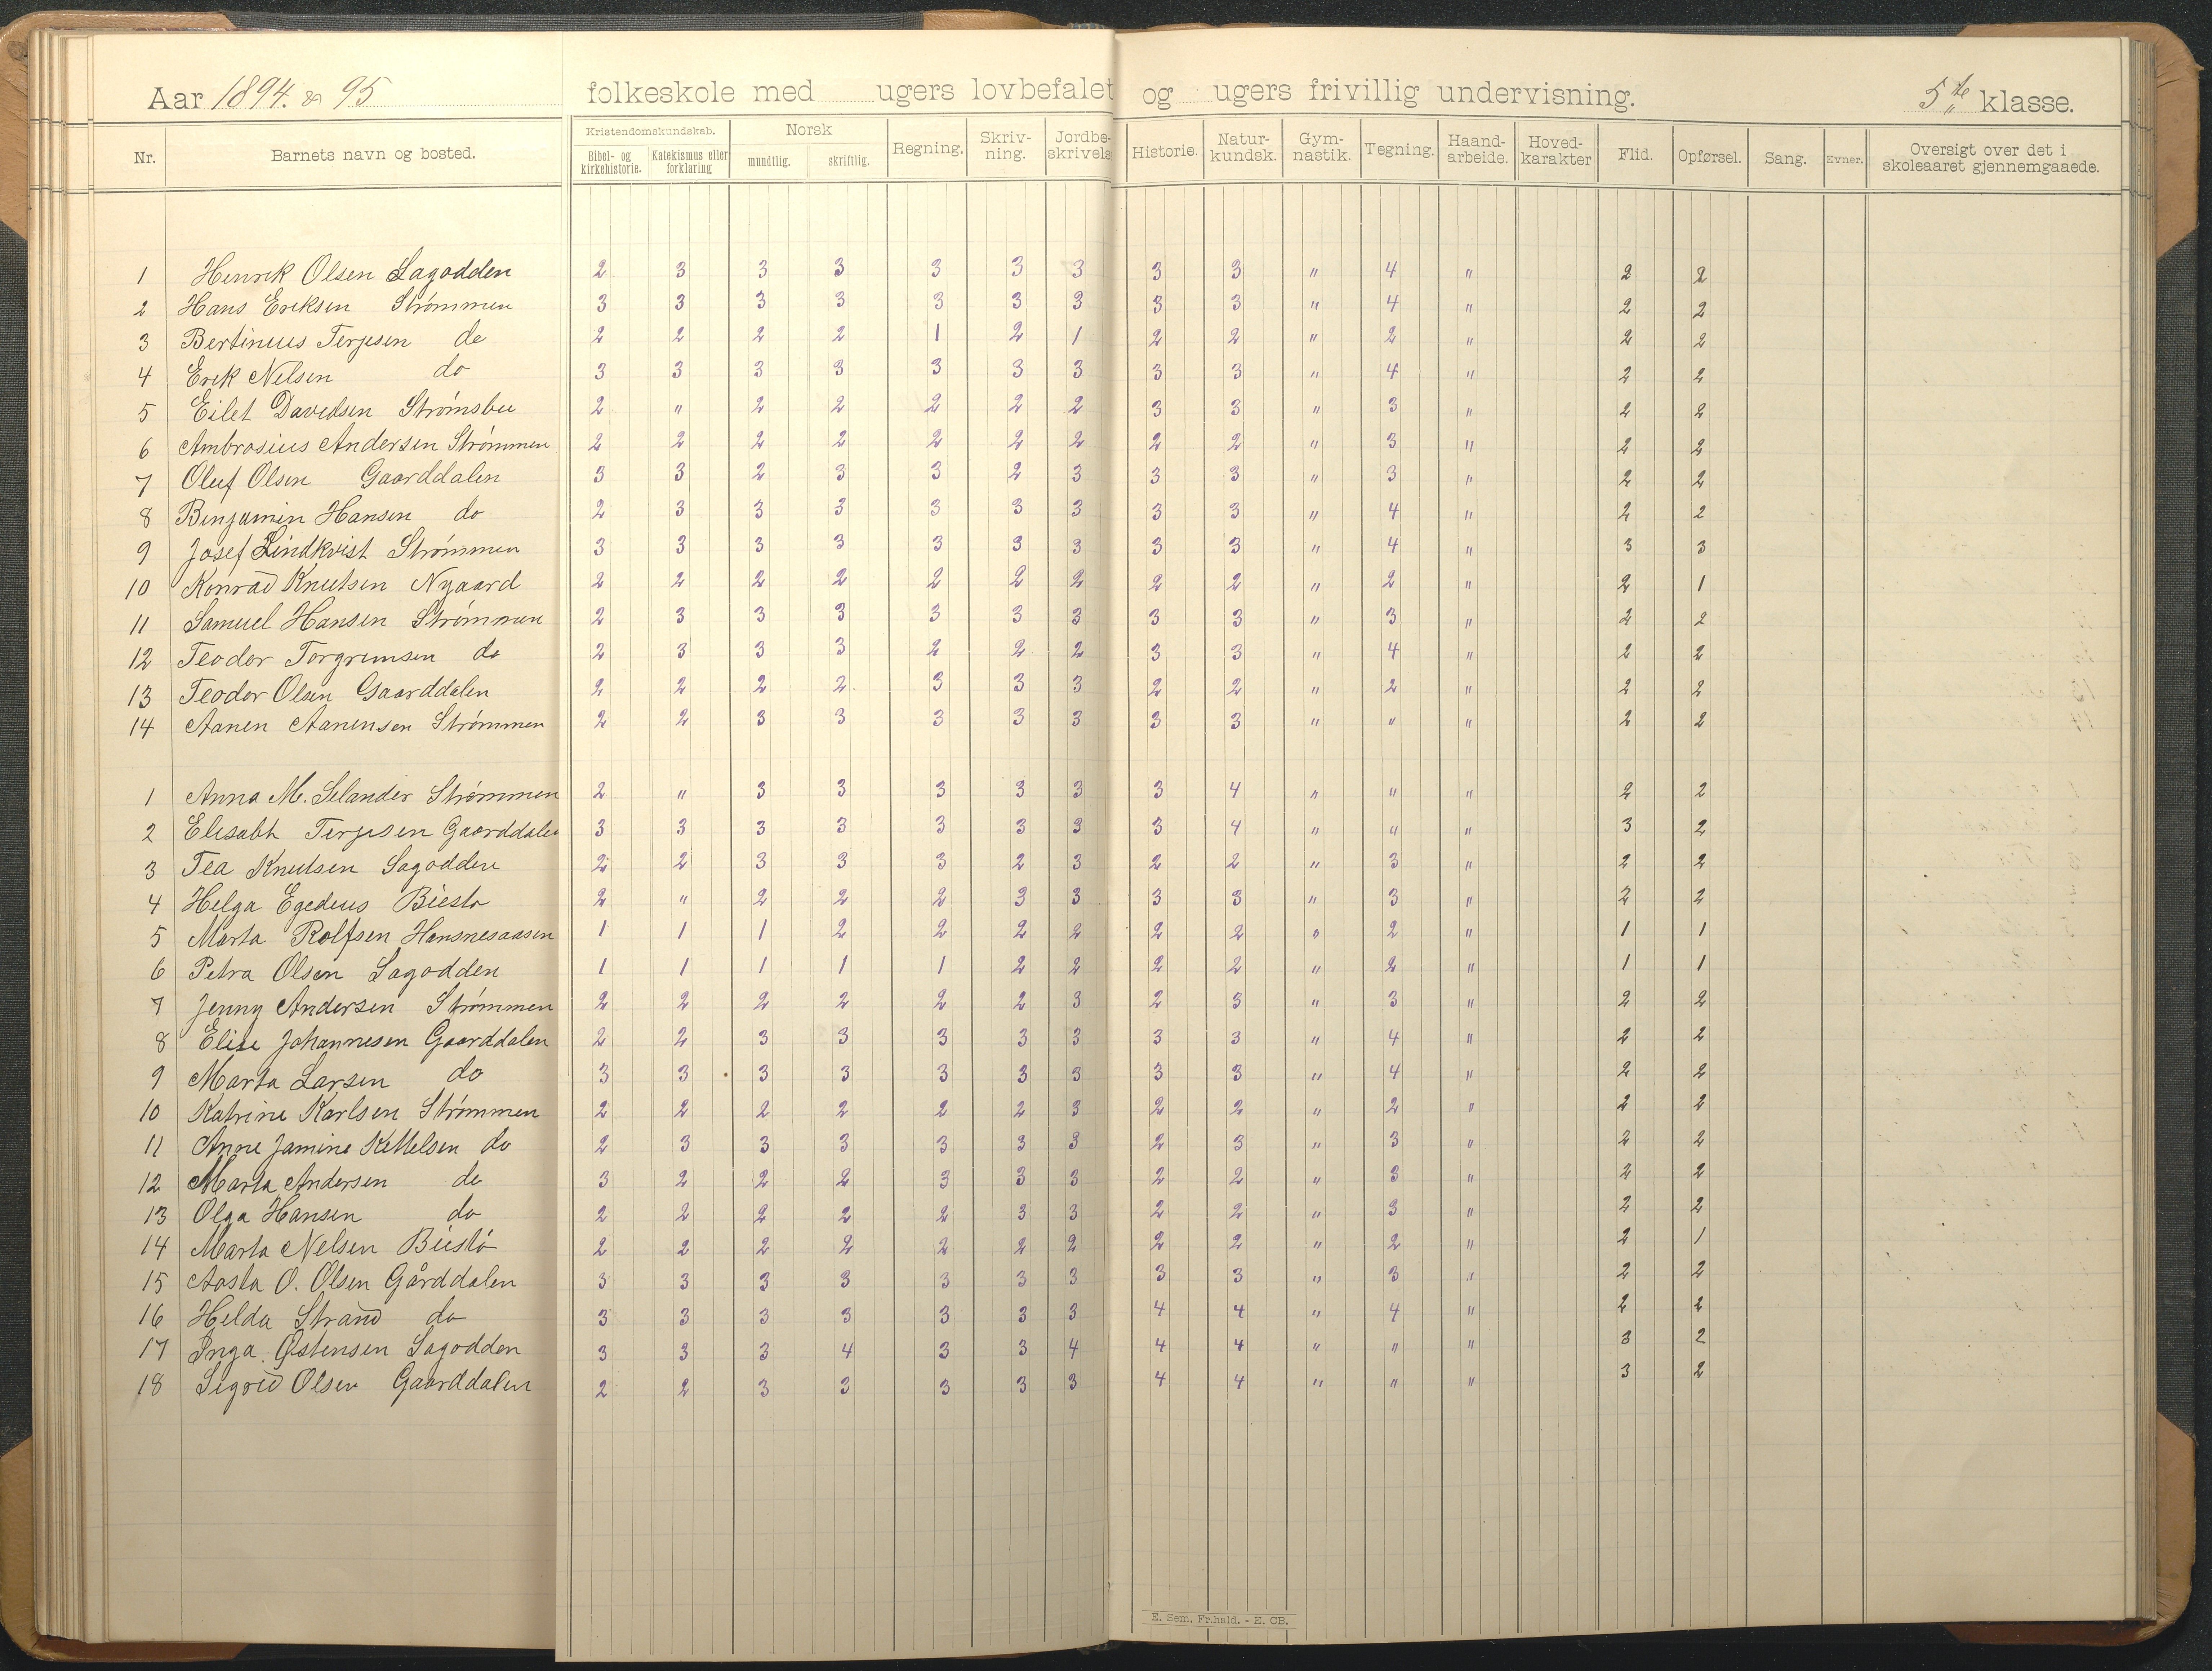 Aar 1894. & 95 folkeskole med ugers lovbefalet og ugers frivillig undervisning. 5te klasse.
Nr. Barnets navn og bosted. Kristendomskundskab. Bibel- og kirkehistorie. Katekismus eller forklaring Norsk mundtlig. skriftlig. Regning. Skriv-ning. Jordbe-skrivels Historie. Natur-kundsk. Gym-nastik. Tegning. Haand-arbeide. Hoved-karakter Flid. Opførsel. Sang. Evner. Oversigt over det i skoleaaret gjennemgaaede.
1 Henrik Olsen Sagodden 2 3 3 3 3 3 3 3 3 " 4 " 2 2
2 Hans Eriksen Strømmen 3 3 3 3 3 3 3 3 3 " 4 " 2 2
3 Bertinius Terjesen do 2 2 2 2 1 2 1 2 2 " 2 " 2 2
4 Erik Nelsen do 3 3 3 3 3 3 3 3 3 " 4 " 2 2
5 Eilet Davidsen Strømsbu 2 " 2 2 2 2 2 3 3 " 3 " 2 2
6 Ambrosius Andersen Strømmen 2 2 2 2 2 2 2 2 2 " 3 " 2 2
7 Oluf Olsen Gaarddalen 3 3 2 3 3 2 3 3 3 " 3 " 2 2
8 Benjamin Hansen do 2 3 3 3 3 3 3 3 3 " 4 " 2 2
9 Josef Lindkvist Strømmen 3 3 3 3 3 3 3 3 3 " 4 " 3 3
10 Konrad Knutsen Nygaard 2 2 2 2 2 2 2 2 2 " 2 " 2 1
11 Samuel Hansen Strømmen 2 3 3 3 3 3 3 3 3 " 3 " 2 2
12 Teodor Torgrimsen do 2 3 3 3 2 2 2 3 3 " 4 " 2 2
13 Teodor Olsen Gaarddalen 2 2 2 2 3 3 3 2 2 " 2 " 2 2
14 Aanen Aanensen Strømmen 2 2 3 3 3 3 3 3 3 " " " 2 2
1 Anna M. Selander Strømmen 2 " 3 3 3 3 3 3 4 " " " 2 2
2 Elisabh Terjesen Gaarddalen 3 3 3 3 3 3 3 3 4 " " " 3 2
3 Tea Knutsen Sagodden 2 2 3 3 3 2 3 2 2 " 3 " 2 2
4 Helga Egedius Biestø 2 " 2 2 2 3 3 3 3 " 3 " 2 2
5 Marta Rolfsen Hansnesaasen 1 1 1 2 2 2 2 2 2 " 2 " 1 1
6 Petra Olsen Sagodden 1 1 1 1 1 2 2 2 2 " 2 " 1 1
7 Jenny Andersen Strømmen 2 2 2 2 2 2 3 2 3 " 3 " 2 2
8 Elise Johannesen Gaarddalen 2 2 3 3 3 3 3 3 3 " 4 " 2 2
9 Marta Larsen do 3 3 3 3 3 3 3 3 3 " 4 " 2 2
10 Katrine Karlsen Strømmen 2 2 2 2 2 2 3 2 2 " 2 " 2 2
11 Anne Jamine Kittelsen do 2 3 3 3 3 3 3 2 3 " 3 " 2 2
12 Marta Andersen do 3 2 2 2 3 3 3 2 2 " 3 " 2 2
13 Olga Hansen do 2 2 2 2 2 3 3 2 2 " 3 " 2 2
14 Marta Nelsen Biestø 2 2 2 2 2 2 2 2 2 " 2 " 2 1
15 Aasta O. Olsen Gårddalen 3 3 3 3 3 3 3 3 3 " 3 " 2 2
16 Helda Strand do 3 3 3 3 3 3 3 4 4 " 4 " 2 2
17 Inga Østensen Sagodden 3 3 3 4 3 3 4 4 4 " " " 3 2
18 Sigrid Olsen Gaarddalen 2 2 3 3 3 3 3 4 4 " " " 3 2
E. Sem, Fr.hald. - E. CB.